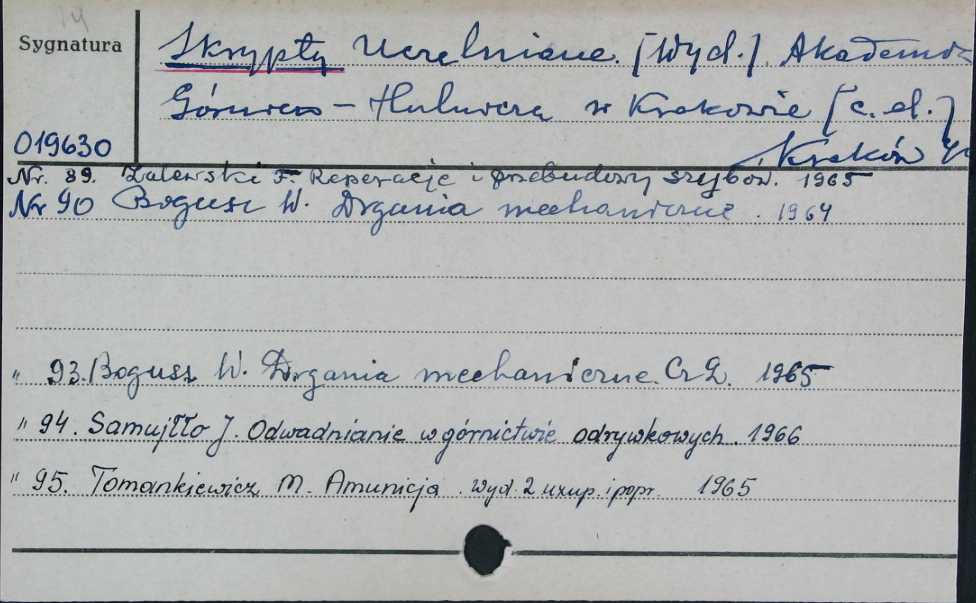 14
Sygnatura
Skrypty Uczelniane. [Wyd.] Akademia
Górniczo - Hutnicza w Krakowie [c.d.]
019630
Kraków
Nr. 89. Zalewski F. Reperacje i przebudowy szybów. 1965
Nr 90 Bogusz W. Drgania mechaniczne. 1964
" 93. Bogusz W. Drgania mechaniczne. Cz 2. 1965
" 94. Samujłło J. Odwadnianie w górnictwie odrywkowych. 1966
" 95. Tomankiewicz M. Amunicja. Wyd. 2 uzup. i popr. 1965